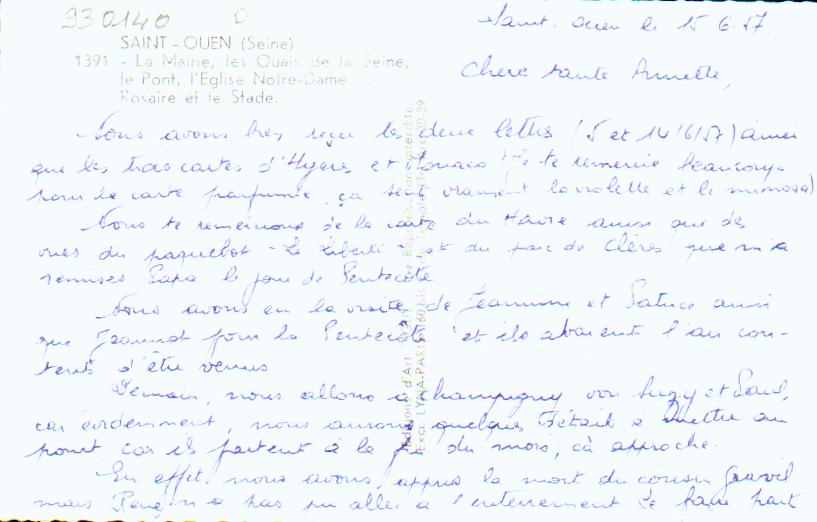 930140
SAINT-OUEN (Seine)
1391 - La Mairie, les Quais de la Seine,
le Pont, l'Eglise Notre-Dame du
Rosaire et le Stade.
Saint-Ouen le 15.6.57.
Chère tante Annette,
Nous avons bien reçu tes deux lettres (5 et 14/6/57) ainsi
que les trois cartes d'Hyères et Monaco (Je te remercie beaucoup
pour la carte parfumée, ça sent vraiment la violette et le mimosa)
Nous te remercions de la carte du Havre ainsi que des
vues du paquebot "Le Liberté" et du parc de Clères que m'a
remises Papa le jour de Pentecôte.
Nous avons eu la visite de Jeannine et Patrice ainsi
que pour la Pentecôte et ils avaient l'air con-
tents d'être venus.
Demain, nous allons à Champigny voir Suzy et Paul,
car évidemment, nous aurons quelques détails à mettre au
point car ils partent à la fin du mois, çà approche.
En effet, nous avons appris la mort du cousin
mais René n'a pas pu aller à l'enterrement le faire part
Editions d'Art
Excl. LYNA-PARIS